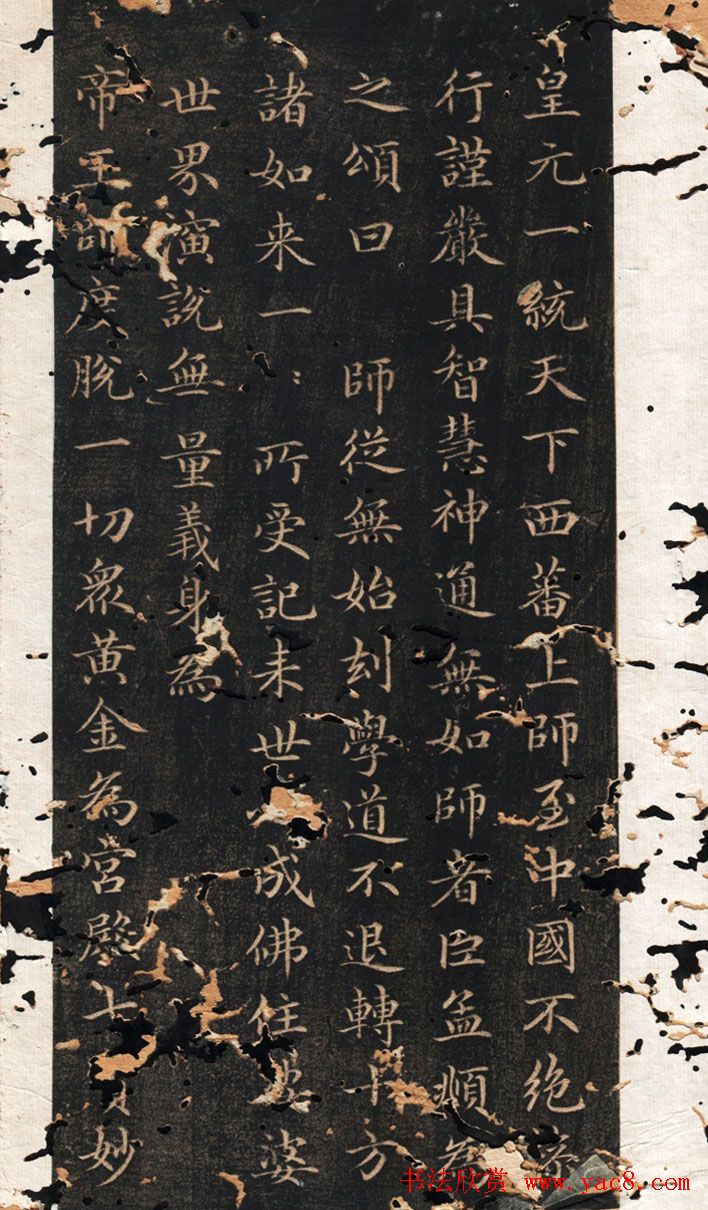 皇元一統天下西蕃上師至中國不絕
行謹嚴具智慧神通無如師者臣孟頫為
之頌曰 師從無始刧學道不退轉十方
諸如来一:所受記来世必成佛住娑婆
世界演說無量義身為
帝王師度脫一切眾黄金為宮殿七寶妙
书法欣赏 www.yac8.com